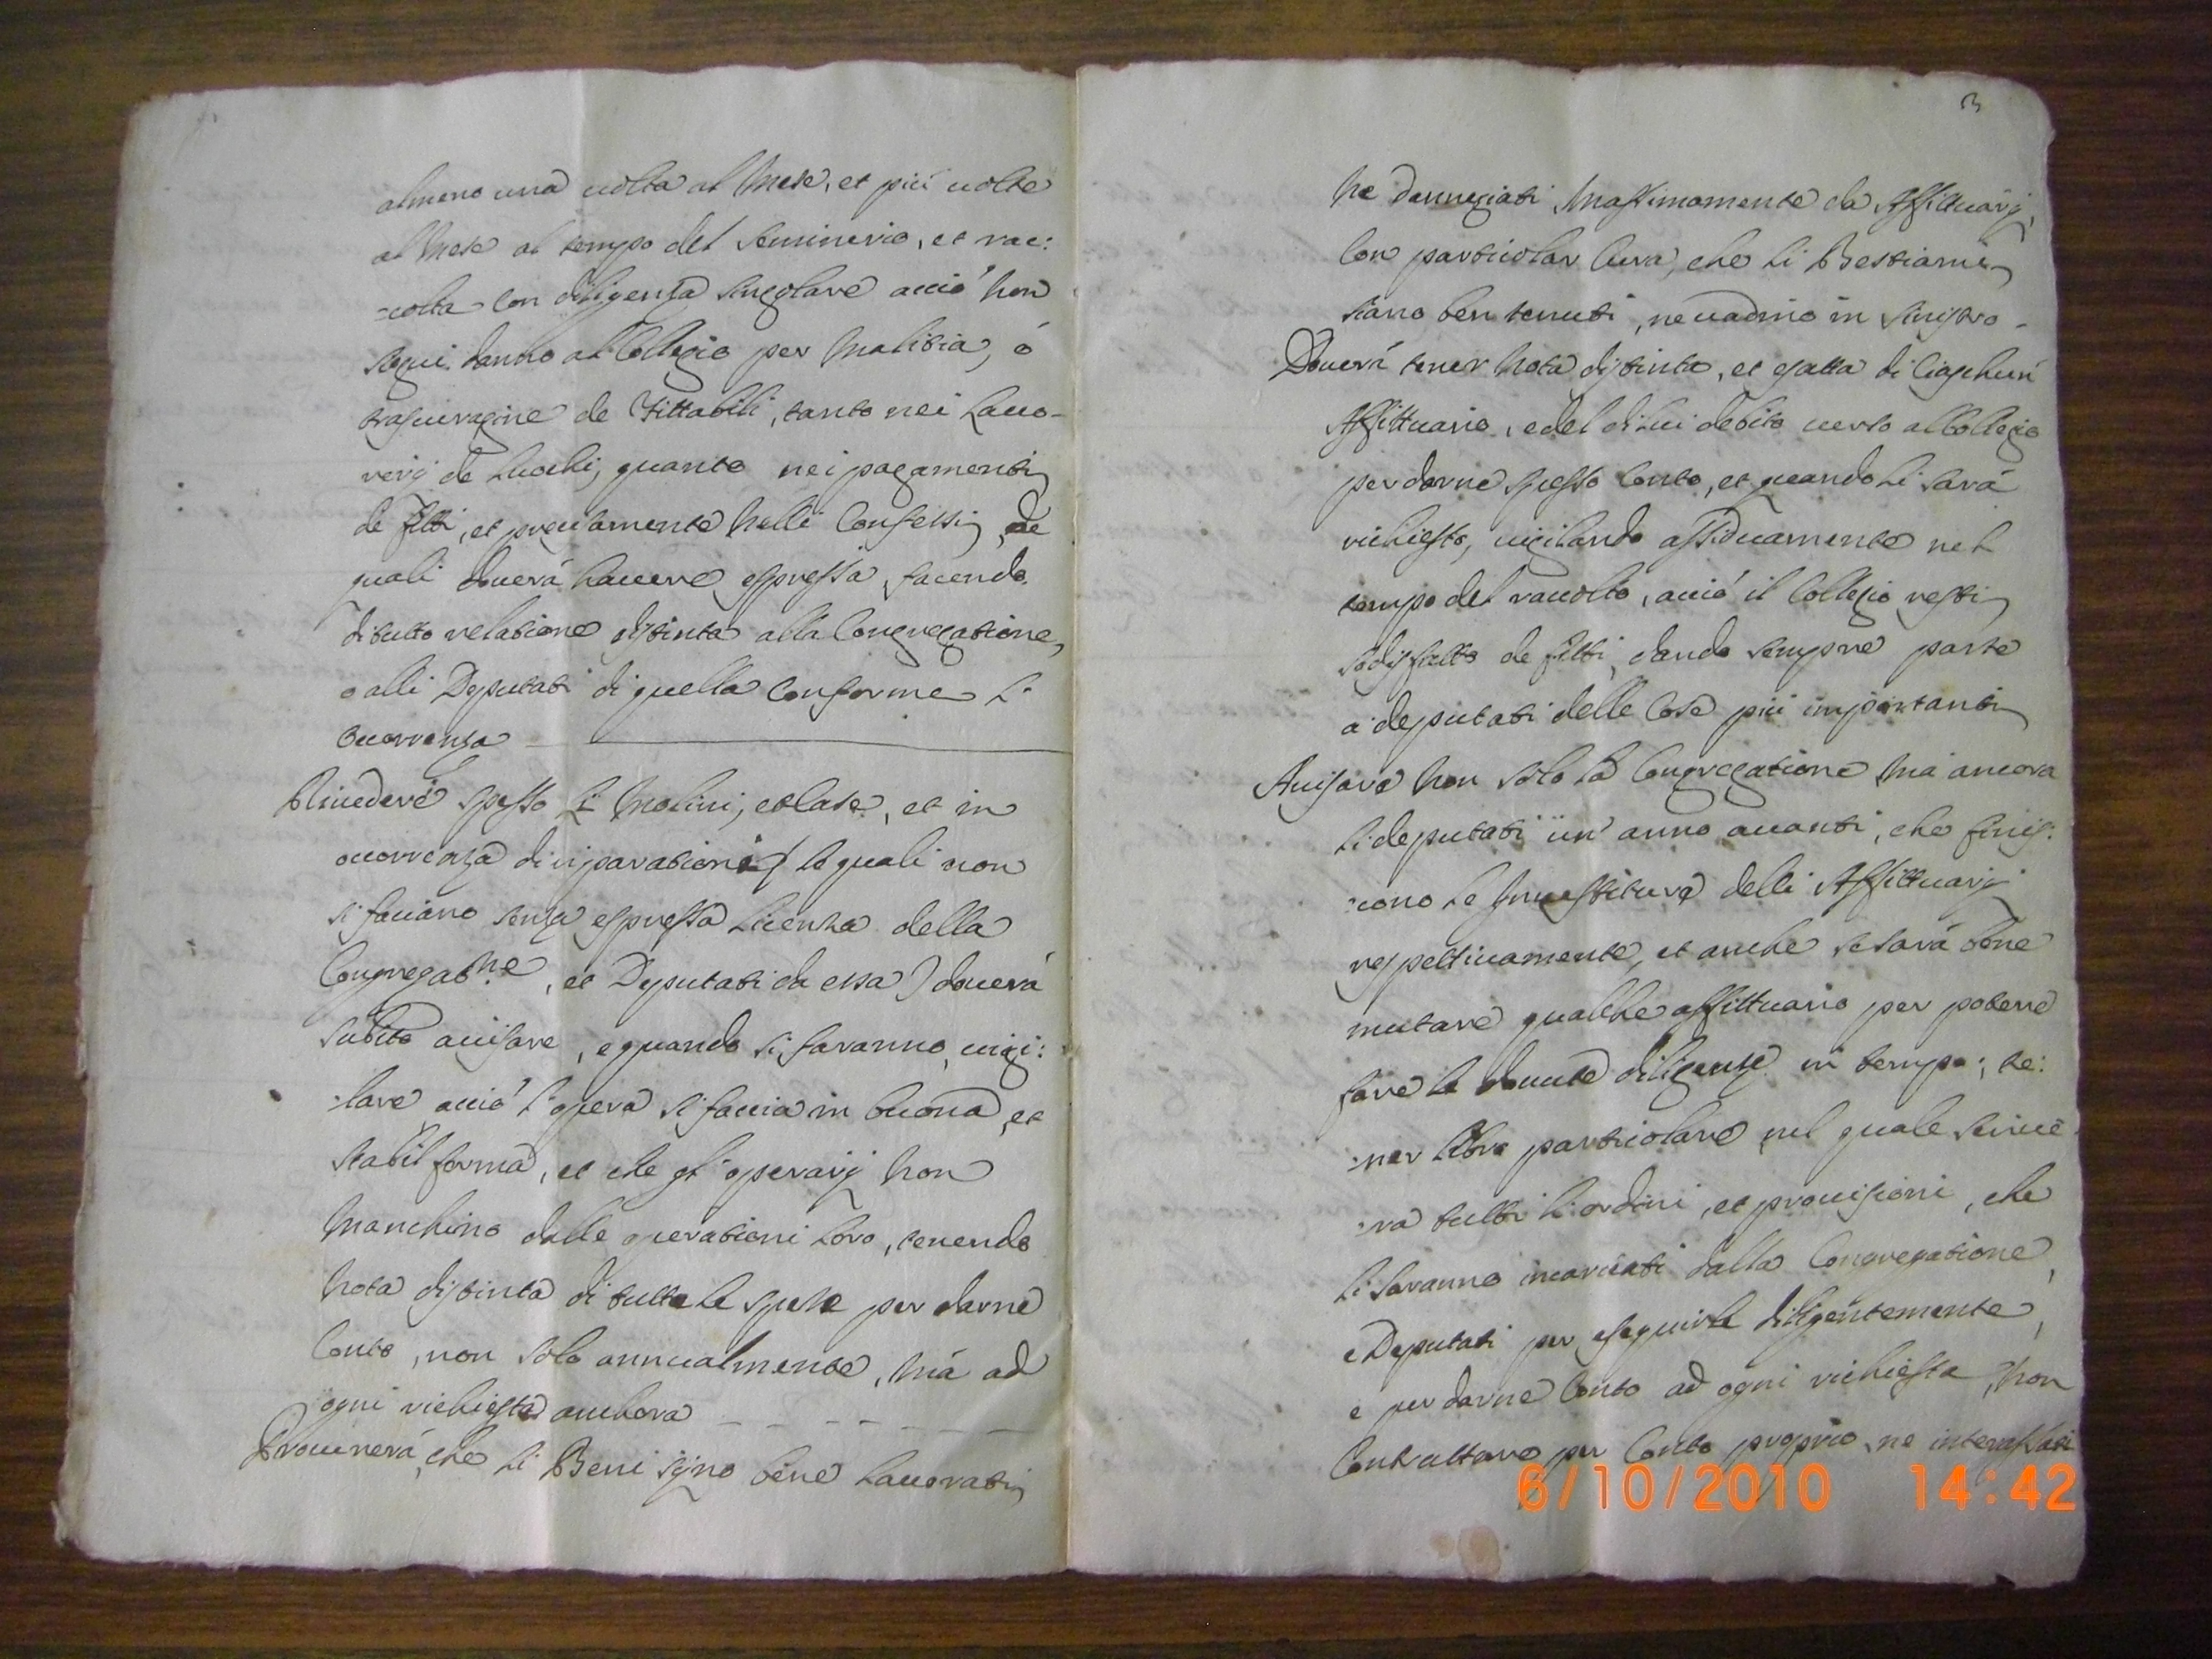 almeno una uolta al Mese, et più uolte
al Mese al tempo del Seminerio, et rac:
:colta con diligenza singolare acciò non
segui danno al Collegio per malitia, ò
trascuragine de Fittabili, tanto nei Lauo-
rerij de Luochi, quanto nei pagamenti
de fitti, et precisamente nelli Confessi, de
quali douerà hauere espressa, facendo
di tutto relatione distinta alla Congregatione,
o alli Deputati di quella conforme l'
occorrenza
Riuedere spesso li Molini, et Case, et in
occorrenza di riparationi (le quali non
si faciano senza espressa licenza della
Congregat.ne, et Deputati da essa) douerà
subito auisare, e quando si faranno, uigi:
:lare acciò l'opera si faccia in buona, et
stabil forma, et che gl'operarij non
manchino dalle operationi loro, tenendo
nota distinta di tutte le spese per darne
Conto, non solo annualmente, mà ad
ogni richiesta anchora
Procurerà, che li Beni sijno bene Lauorati,
3
ne danneggiati massimamente da Affittuarij,
Con particolar Cura, che li Bestiami
siano ben tenuti, ne uadino in sinistro
Douerà tener nota distinta, et esatta di Ciaschun
Affittuario, e del di lui debito uerso al Collegio
per darne spesso Conto, et quando li sarà
richiesto, uigilando assiduamente nel
tempo del raccolto, acciò il Collegio resti
sodisfatto de fitti, dando sempre parte
a deputati delle Cose più importanti
Auisare non solo la Congregatione mà ancora
li deputati un' anno auanti, che finis:
:cono le Inuestiture delli Affittuarij
respettiuamente, et anche se sarà bene
mutare qualche affittuario per potere
fare le douute diligenze in tempo; te:
:ner libro particolare nel quale scriue
:rà tutti li ordini, et prouisioni, che
li saranno incaricati dalla Congregatione,
e Deputati per eseguirle diligentemente,
e per darne Conto ad ogni richiesta, Non
Contrattare per Conto proprio, ne interessati
6/10/2010 14:42